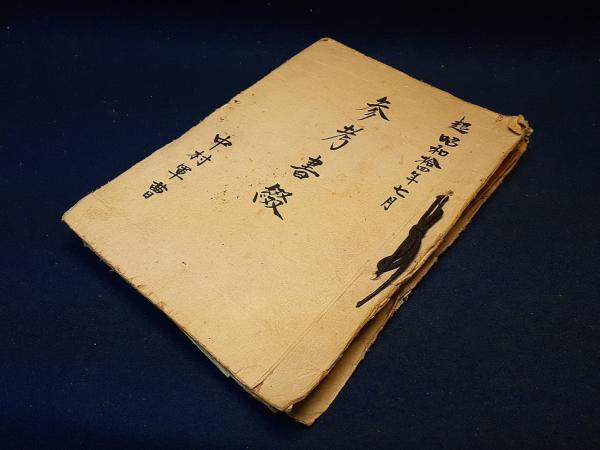 起昭和拾四年七月
参考書綴
中村軍曹